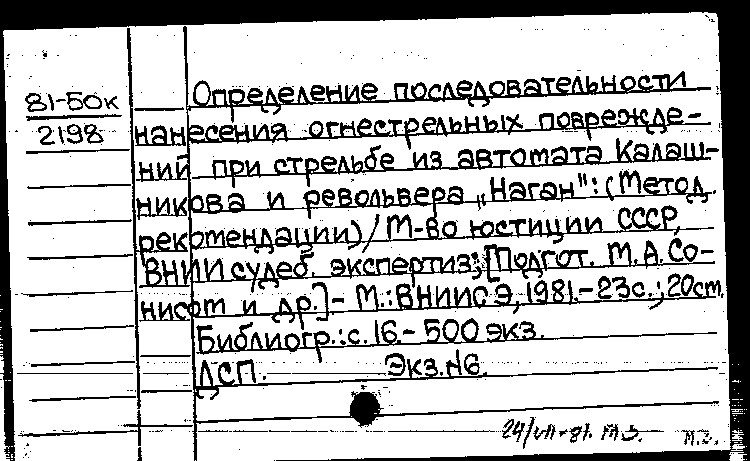 81-БОк
2198
Определение последовательности
нанесения огнестрельных поврежде-
ний при стрельбе из автомата Калаш-
никова и револьвера „Наган": (Метод.
рекомендации) / М-во юстиции СССР,
ВНИИ судеб. экспертиз; [Подгот. М.А.Со-
нисом и др.] - М.: ВНИИСЭ, 1981. - 23с.; 20см.
Библиогр.: с. 16. - 500 экз.
ДСП. Экз.№6.
24/VII-81.